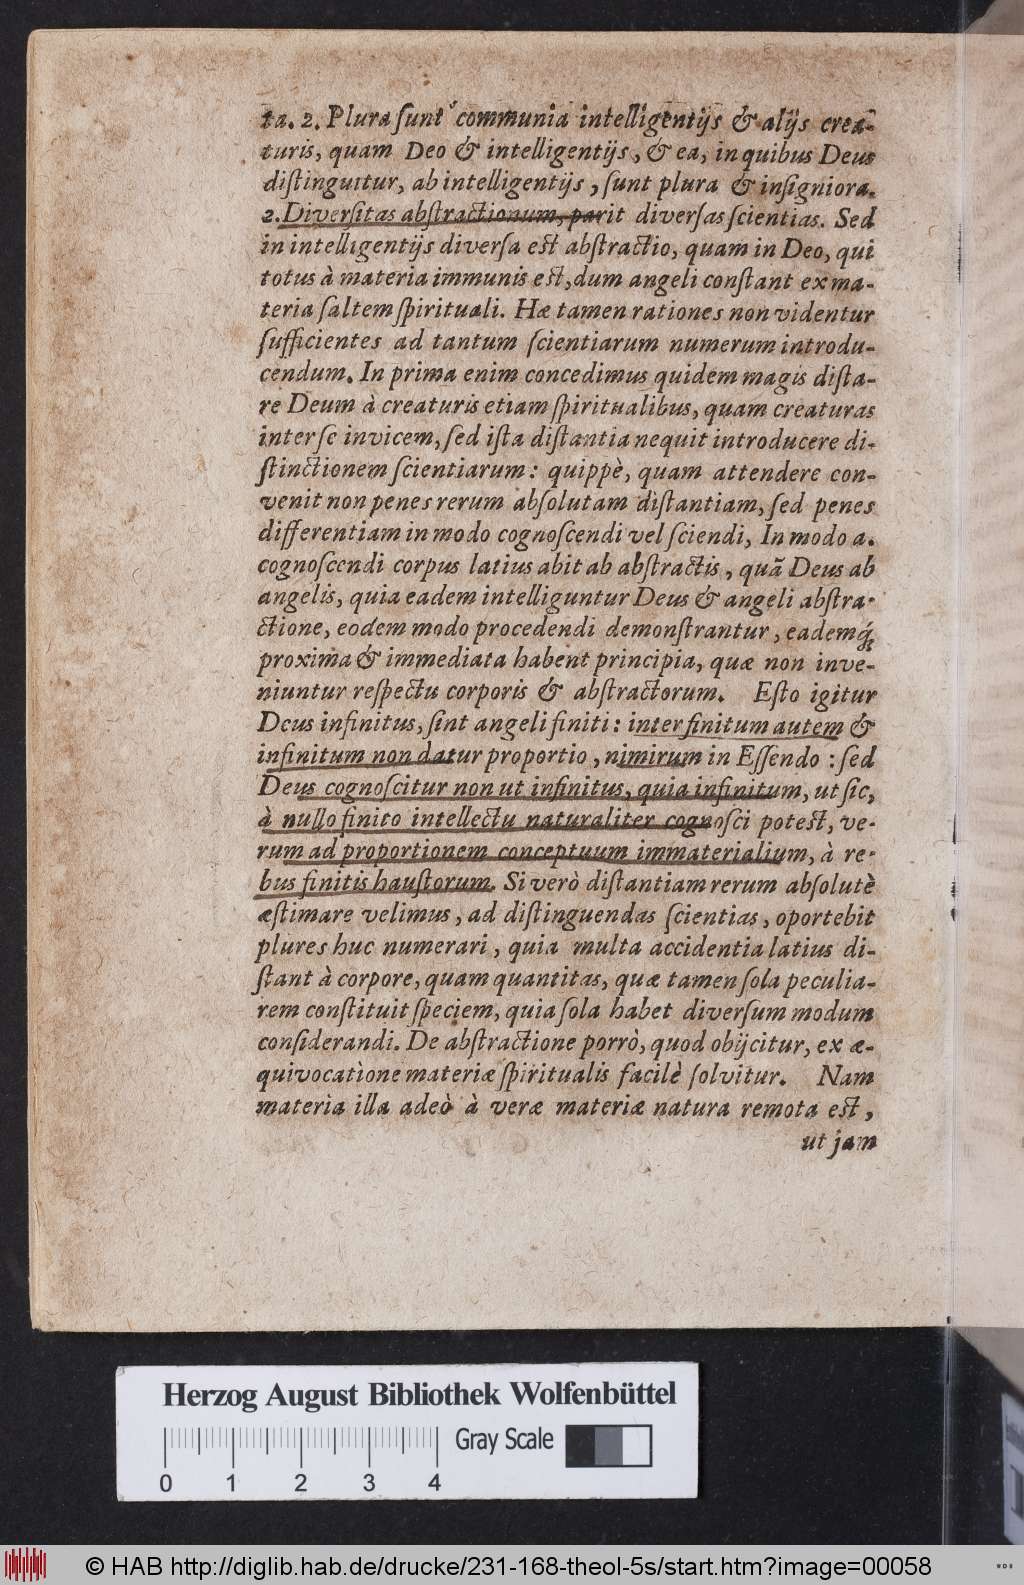 ta. 2. Plura ſunt communia intelligentijs & alijs crea-
turis, quam Deo & intelligentijs, & ea, in quibus Deus
diſtinguitur, ab intelligentijs, ſunt plura & inſigniora.
2. Diverſitas abſtractionum, parit diverſas ſcientias. Sed
in intelligentijs diverſa est abſtractio, quam in Deo, qui
totus à materia immunis est, dum angeli conſtant ex ma-
teria ſaltem ſpirituali. Hæ tamen rationes non videntur
ſufficientes ad tantum ſcientiarum numerum introdu-
cendum. In prima enim concedimus quidem magis diſta-
re Deum à creaturis etiam ſpiritualibus, quam creaturas
inter ſe invicem, ſed iſta diſtantia nequit introducere di-
ſtinctionem ſcientiarum: quippè, quam attendere con-
venit non penes rerum abſolutam diſtantiam, ſed penes
differentiam in modo cognoſcendi vel ſciendi, In modo a.
cognoſcendi corpus latius abit ab abſtractis, quã Deus ab
angelis, quia eadem intelliguntur Deus & angeli abſtra-
ctione, eodem modo procedendi demonſtrantur, eademq́;
proxima & immediata habent principia, quæ non inve-
niuntur reſpectu corporis & abſtractorum. Eſto igitur
Deus infinitus, ſint angeli finiti: inter finitum autem &
infinitum non datur proportio, nimirum in Eſſendo: ſed
Deus cognoſcitur non ut infinitus, quia infinitum, ut ſic,
à nullo finito intellectu naturaliter cognoſci potest, ve-
rum ad proportionem conceptuum immaterialium, à re-
bus finitis hauſtorum. Si verò diſtantiam rerum abſolutè
æſtimare velimus, ad diſtinguendas ſcientias, oportebit
plures huc numerari, quia multa accidentia latius di-
ſtant à corpore, quam quantitas, quæ tamen ſola peculia-
rem conſtituit ſpeciem, quia ſola habet diverſum modum
conſiderandi. De abſtractione porrò, quod obijcitur, ex æ-
quivocatione materiæ ſpiritualis facilè ſolvitur. Nam
materia illa adeò à veræ materiæ natura remota est,
ut jam
Herzog August Bibliothek Wolfenbüttel
Gray Scale
0 1 2 3 4
© HAB http://diglib.hab.de/drucke/231-168-theol-5s/start.htm?image=00058